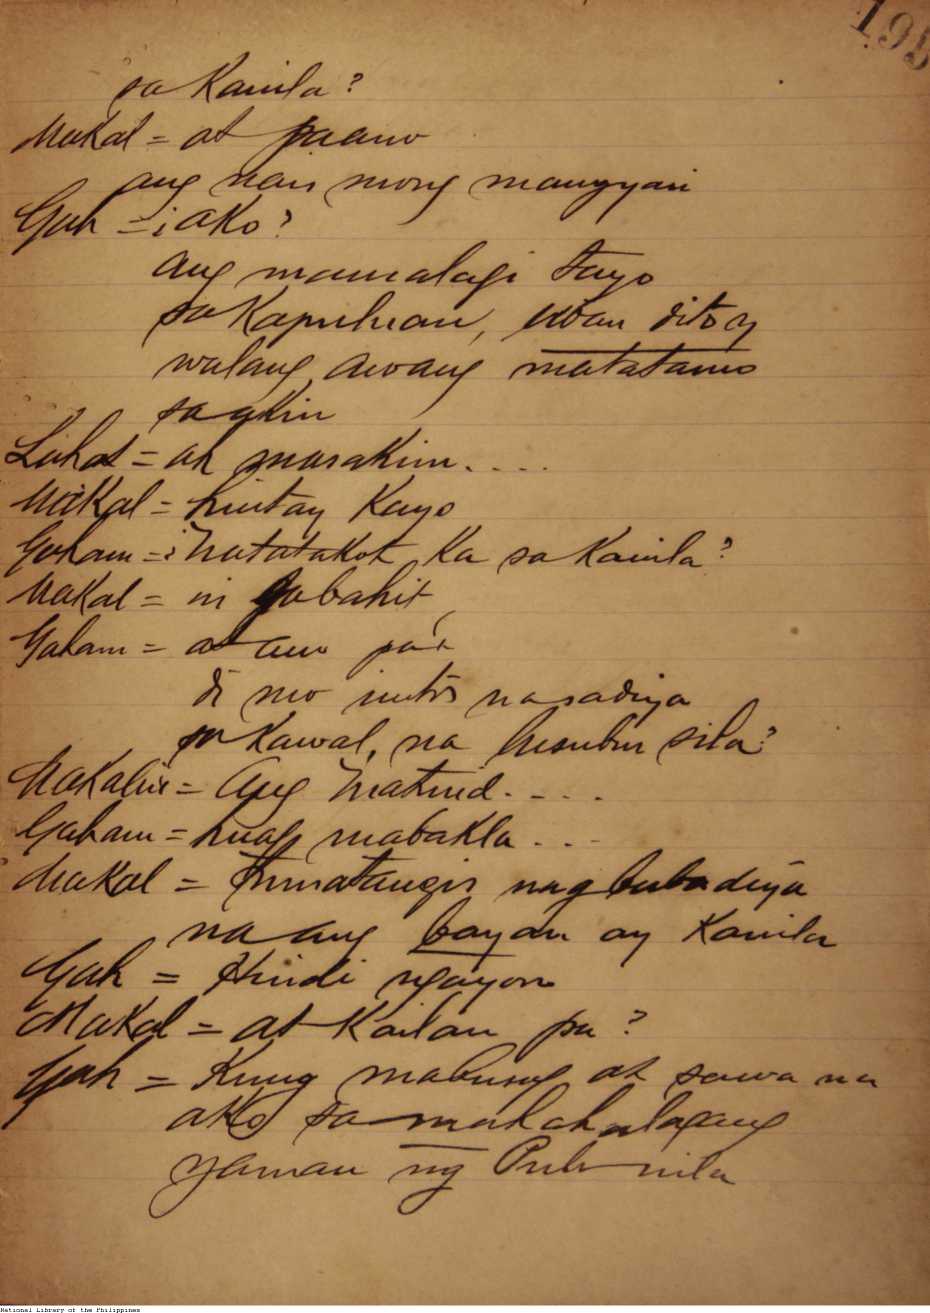 195
sa Kanila?
Makal = at paano
ang nais mong mangyari
Gah = ¿ ako?
ang mamalagi tayo
sa Kapuluan, uban dito y
walang awang matatamo
sa akin
Lahat = ah masakim....
Makal = hintay Kayo
Gaham = ¿ Natatakot Ka sa Kanila?
Makal = ni gabahit
Gaham = at ano pa't
di mo iutos na sadiya
sa Kawal, na lusubin sila?
Makalin = Ang Matuid....
Gaham = huag mabakla...
Makal = tumatangis nag bubadiya
na ang bayan ay Kanila
Gah = Hindi ngayon
Makal = at Kailan pa?
Gah = Kung mabusog at sawa na
ako sa mahahalagang
yaman ng
National Library of the Philippines